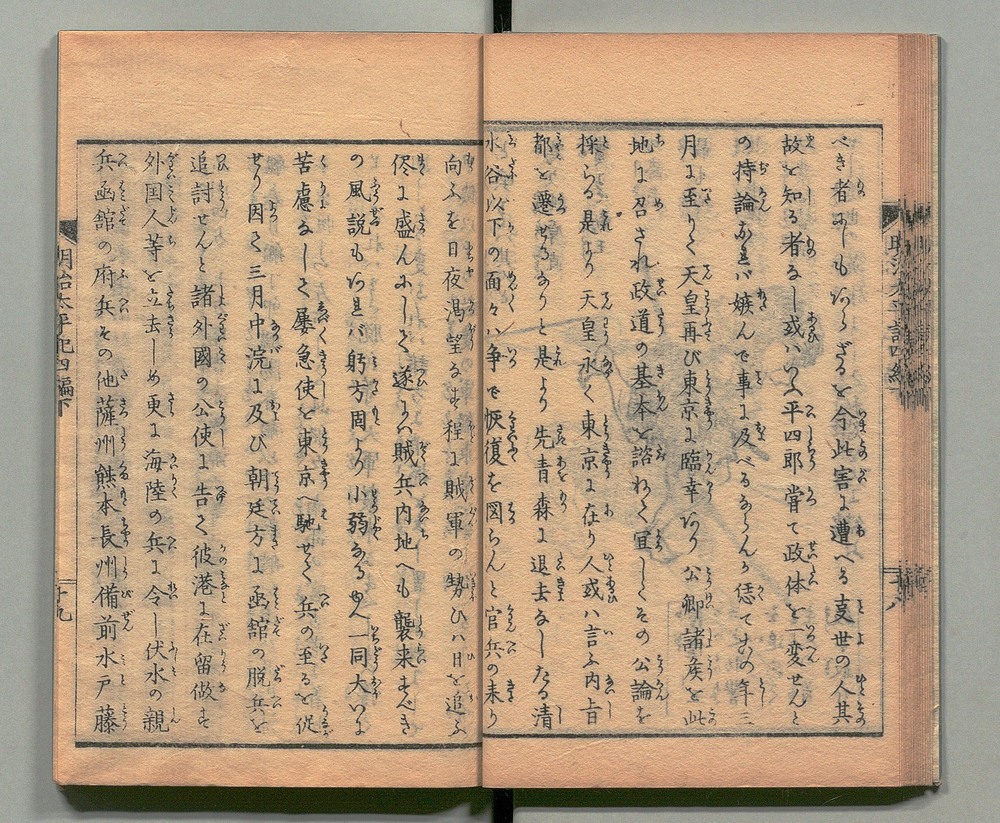 べき者にしもあらざるを今此害に遭へる叓世の人其
故を知る者なし或ハいふ平四郎嘗て政体を一変せんと
の持論あれバ嫉んで事に及べるならんか偖てもの年三
月に至りて天皇再び東京に臨幸あり公卿諸矦を此
地に召され政道の基本を諮ねく宜しくその公論を
採らる是より天皇永く東京に在り人或ハ言ふ内旨
都を遷せるなりと是より先青森に退去なしたる清
水谷以下の面々ハ争で恢復を図らんと官兵の来り
向ふを日夜渇望なす程に賊軍の勢ひハ日を追ふ
侭に盛んにして遂にハ賊兵内地へも襲来すべき
の風説もあれバ躬方固より小弱なる由へ一同大いに
苦慮なして屡急使を東京へ馳せて兵の至るを促
せり因て三月中浣に及び朝廷方に函舘の脱兵を
追討せんと諸外國の公使に告て彼港に在留做す
外国人等を立去しめ更に海陸の兵に令し伏水の親
兵函舘の府兵その他薩州熊本長州備前水戸藤
明治太平記四編下
十九